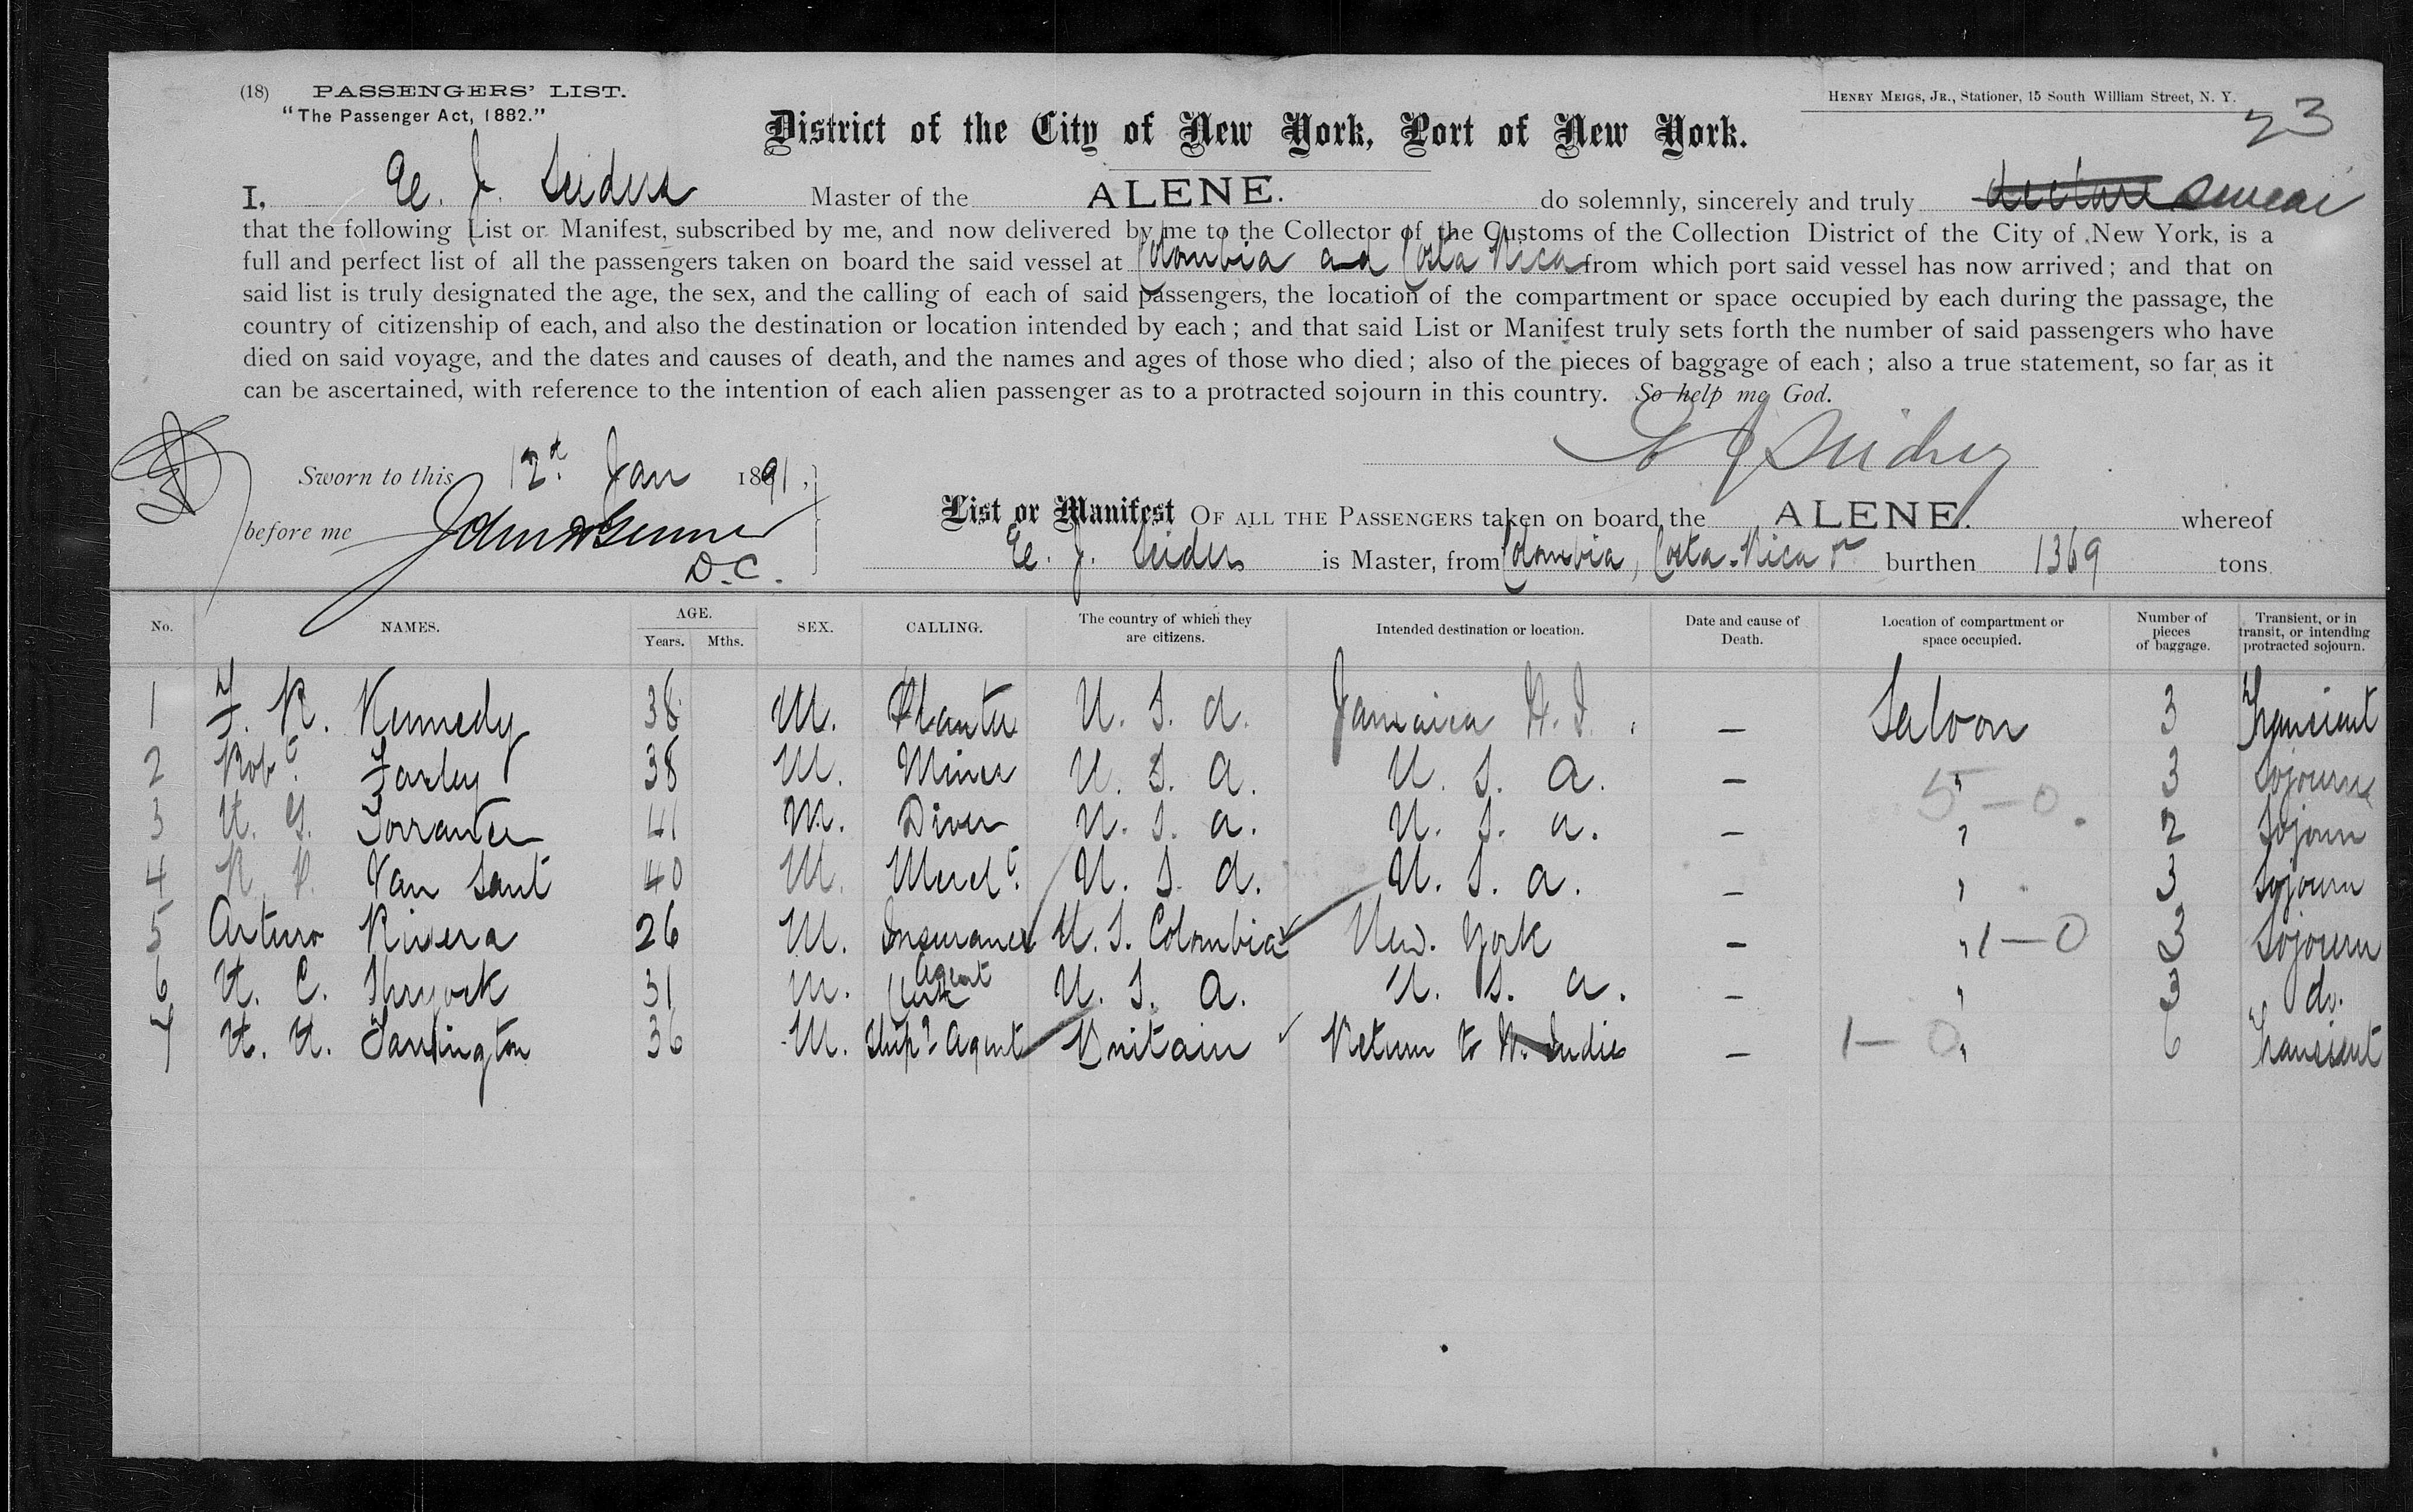 (18) PASSENGERS' LIST.
"The Passenger Act, 1882."
HENRY MEIGS, JR., Stationer, 15 South William Street, N. Y.
23
District of the City of New York, Port of New York.
I, E. J. Seiders Master of the ALENE. do solemnly, sincerely and truly declare swear
that the following List or Manifest, subscribed by me, and now delivered by me to the Collector of the Customs of the Collection District of the City of New York, is a
full and perfect list of all the passengers taken on board the said vessel at Colombia and Costa Rica from which port said vessel has now arrived; and that on
said list is truly designated the age, the sex, and the calling of each of said passengers, the location of the compartment or space occupied by each during the passage, the
country of citizenship of each, and also the destination or location intended by each; and that said List or Manifest truly sets forth the number of said passengers who have
died on said voyage, and the dates and causes of death, and the names and ages of those who died; also of the pieces of baggage of each; also a true statement, so far as it
can be ascertained, with reference to the intention of each alien passenger as to a protracted sojourn in this country. So help me God.
E J Seiders
Sworn to this 12th Jan 1891,
before me John
D.C.
List or Manifest OF ALL THE PASSENGERS taken on board the ALENE. whereof
E. J. Seiders is Master, from Colombia, Costa-Rica burthen 1369 tons
No. NAMES. AGE. Years. Mths. SEX. CALLING. The country of which they are citizens. Intended destination or location. Date and cause of Death. Location of compartment or space occupied. Number of pieces of baggage. Transient, or in transit, or intending protracted sojourn.
1 F. R. Kennedy 38 M. Planter U. S. A. Jamaica W. I. — Saloon 3 Transient
2 Robt. Farley 38 M. Miner U. S. A. U. S. A. — " 3 Sojourn
5-0.
3 H. G. Torrance 41 M. Diver U. S. A. U. S. A. — " 2 Sojourn
4 R. P. Van Sant 40 M. Mercht. U. S. A. U. S. A. — " 3 Sojourn
5 Arturo Rivera 26 M. Insurance Agent U. S. Colombia New. York — " 1-0 3 Sojourn
6 H. C. Shryock 31 M. Clerk U. S. A. U. S. A. — " 3 do.
7 H. H. Farrington 36 M. Shipg Agent Britain Return to W. Indies — 1-0 " 6 Transient